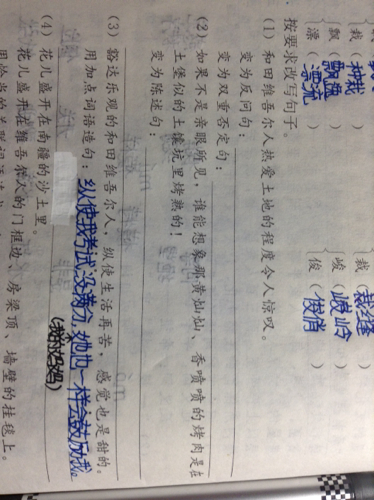 栽（种栽） 裁（裁缝）
飘（飘盪） 峻（峻岭）
漂（漂流） 俊（俊俏）
按要求改写句子。
（1）和田维吾尔人热爱土地的程度令人惊叹。
变为反问句：
变为双重否定句：
（2）如果不是亲眼所见，谁能想象那黄灿灿、香喷喷的烤肉是在
土堡似的土馕坑里烤熟的！
变为陈述句：
（3）豁达乐观的和田维吾尔人，纵使生活再苦，感觉也是甜的。
用加点词语造句：纵使我考试没满分，她也一样会鼓励我。
（我的妈妈）
（4）花儿盛开在南疆的沙土里。
花儿盛开在维吾尔人的门框边、房梁顶、墙壁的挂毯上。